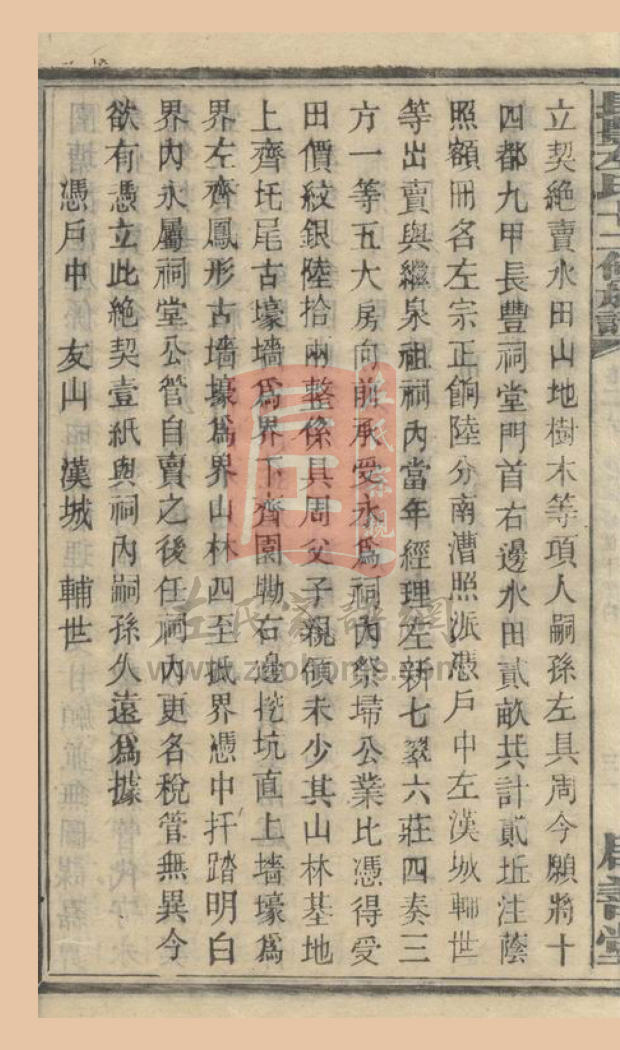 立契絶賣水田山地樹木等項人嗣孫左具周今願將十
四都九甲長豐祠堂門首右邊水田貳畝共計貳坵注蔭
照額册名左宗正餉陸分南漕照派憑戶中左漢城輔世
等出賣與繼泉祖祠內當年經理左新七翠六莊四奏三
方一等五大房向前承受永爲祠內祭埽公業比憑得受
田價紋銀陸拾兩整係具周父子親領未少其山林基地
上齊圫尾古壕墻爲界下齊園坳右邊挖坑直上墻壕爲
界左齊鳳形古墻壕爲界山林四至抵界憑中扦踏明白
界內永屬祠堂公管自賣之後任祠內更名稅管無異今
欲有憑立此絶契壹紙與祠內嗣孫久遠爲據
憑戶中 友山 漢城 輔世
左氏家譜網
www.zuohome.com